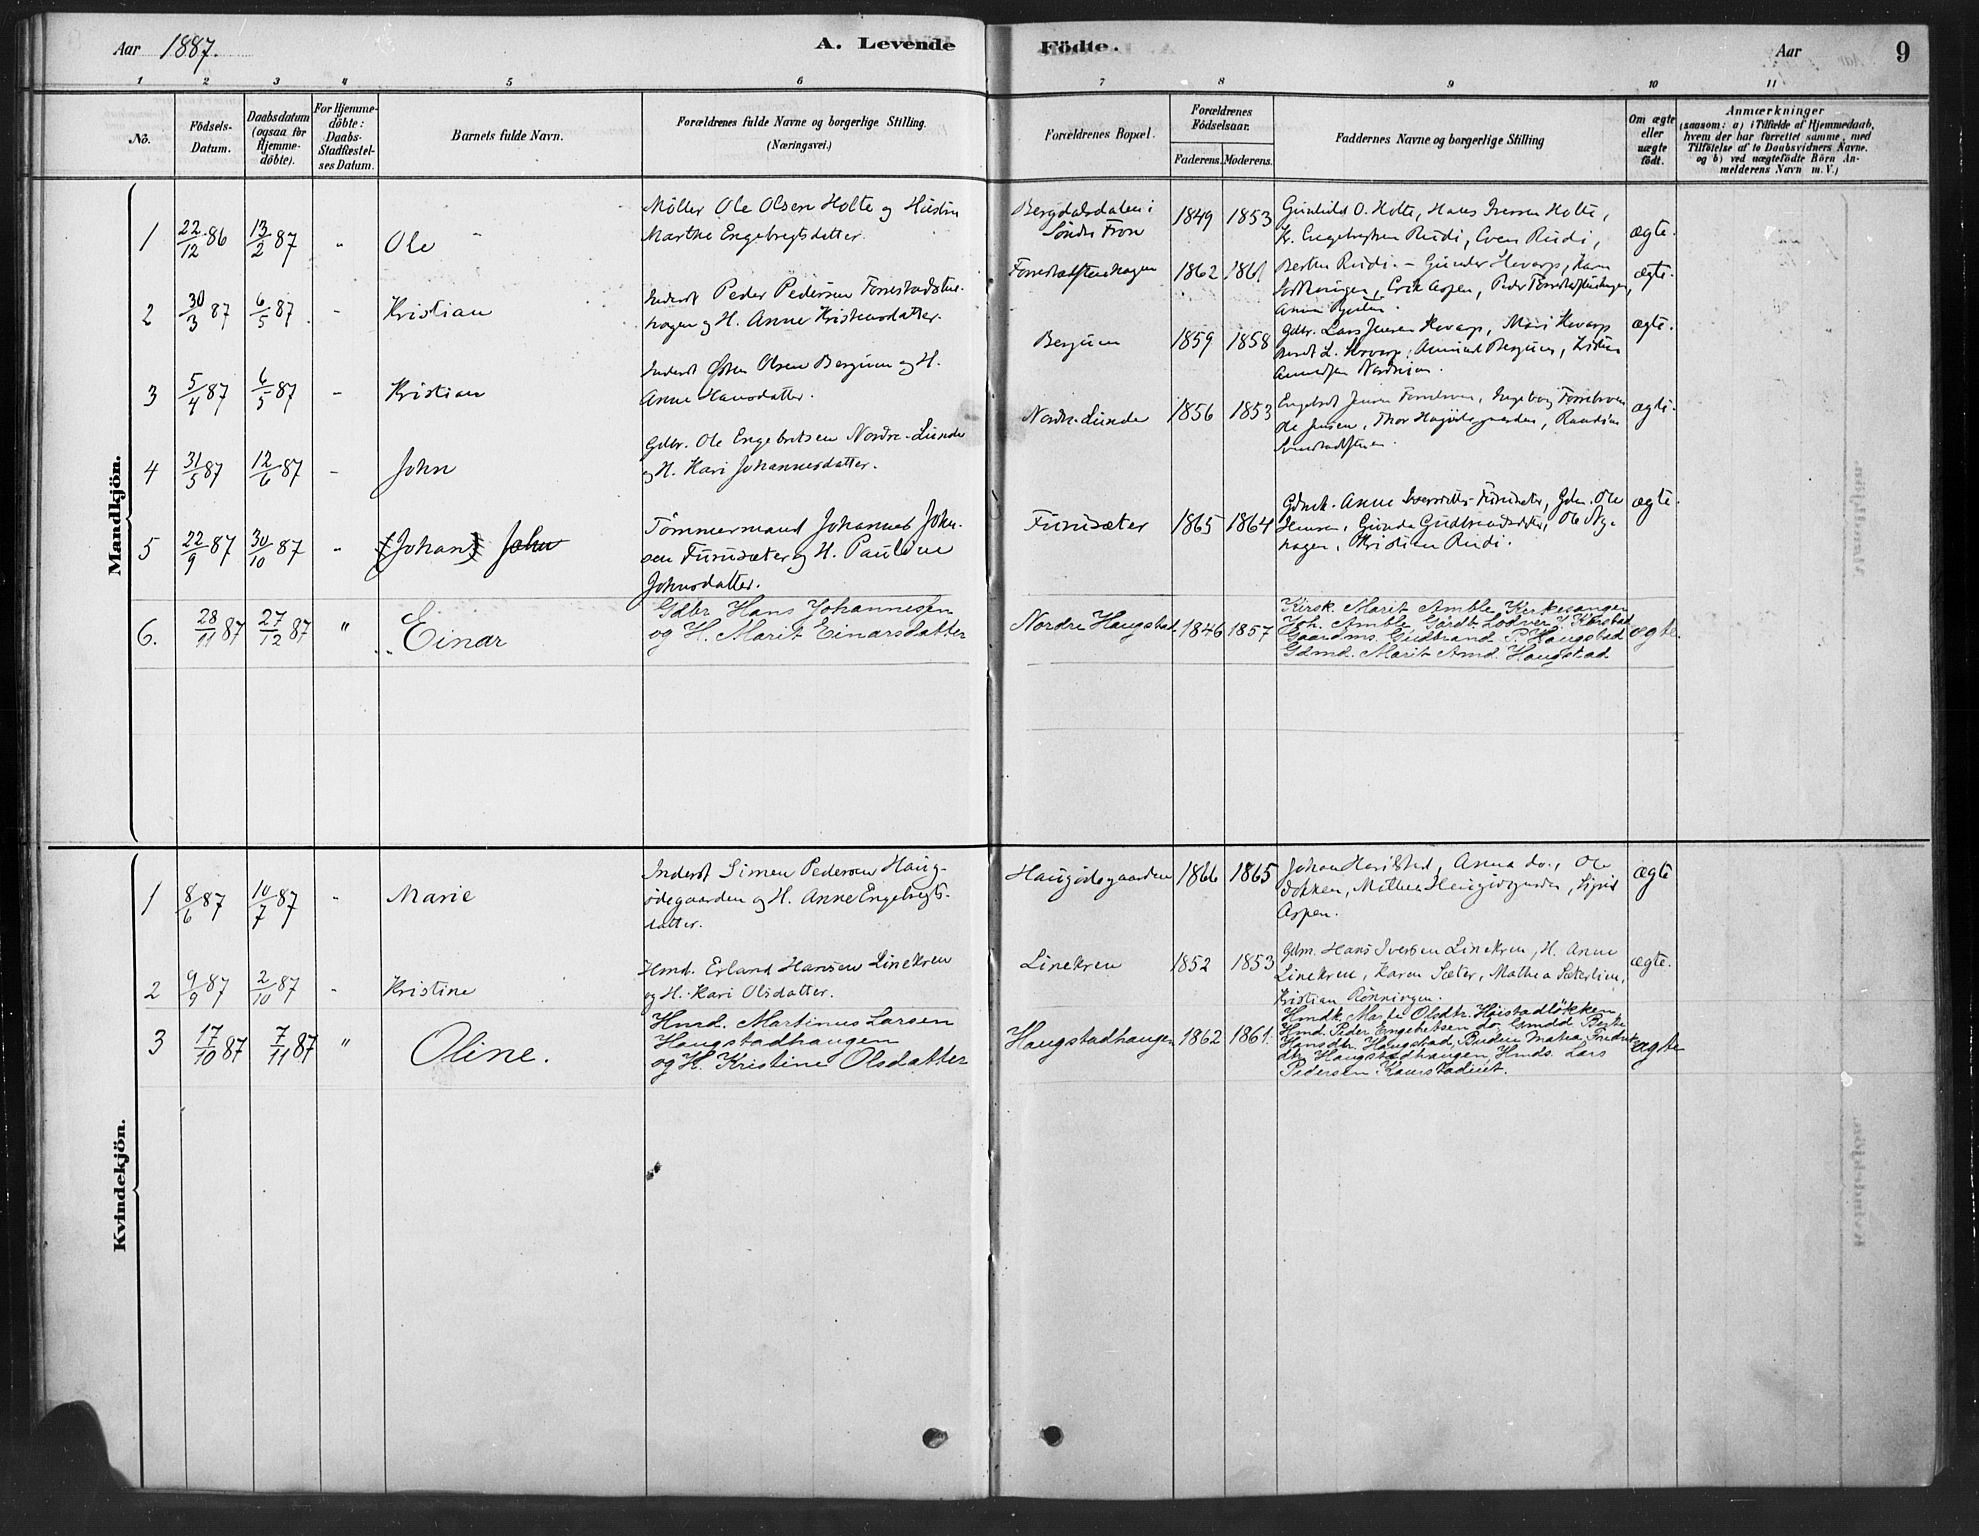 Aar 1887.
A. Levende Födte.
Aar
9
1 2 3 4 5 6 7 8 9 10 11
No.
Födsels-
Datum.
Daabsdatum
(ogsaa for
Hjemme-
döbte).
For Hjemme-
döbte:
Daabs-
Stadfæstel-
ses Datum.
Barnets fulde Navn.
Forældrenes fulde Navne og borgerlige Stilling.
(Næringsvei.)
Forældrenes Bopæl.
Forældrenes
Födselsaar.
Faderens. Moderens.
Faddernes Navne og borgerlige Stilling
Om ægte
eller
uægte
födt.
Anmærkninger
(saasom: a) i Tilfælde af Hjemmedaab,
hvem der har forrettet samme, med
Tilföielse af to Daabsvidners Navne.
og b) ved uægtefödte Börn An-
melderens Navn m. V.)
Mandkjön.
1 22/12 86 13/2 87 " Ole
Möller Ole Olsen Holte og Hustru
Marthe Engebregtsdatter.
Bergdalsdalen i
Søndre Fron
1849 1853
Gunhild O. Holte, Hans Iversen Holte,
Kr. Engebregtsen Rudi, Sven Rudi,
Berthe Rudi.
ægte.
2 30/3 87 6/5 87. " Kristian
Inderst Peder Pedersen Forrestadstu-
hagen og H. Anne Kristensdatter.
1862 1861
Gunder Hovarp, Karn
Erik Aspen, Peder
ægte.
3 5/4 87 6/5 87 " Kristian
Inderst Østen Olsen Bergum og H.
Anne Hansdatter.
Bergum
1859 1858
Gdbr. Lars Jensen Hovarp, Mari Hovarp
Berdt L. Hovarp, Amund Bergum,
ægte.
4 31/5 87 12/6 87 " John
Gdbr. Ole Engebretsen Nordre-Lunde
og H. Kari Johannesdatter.
Nordre-Lunde
1856 1853
Engebret Jensen Ingeborg
Ole Jensen, Thor Haugödegaarden,
ægte.
5 22/9 87 30/10 87 " (Johan) John
Tømmermand Johannes John-
sen Furusæter og H. Pauline
Johnsdatter.
Furusæter
1865 1864
Anne Iversdatter Furusæter, Ole
Jensen, Gunda Gudbrandsdatter, Ole Nyj-
hagen, Kristian Rudi.
ægte.
6. 28/11 87 27/12 87 " Einar
Gdbr Hans Johannesen
og H. Marit Einarsdatter
Nordre Haugstad
1846 1857
Kirsk. Marit Amble Kirkesanger
Joh. Amble Gårdb. Lodver J. Korstad
Gaardms. Gudbrand P. Haugstad
Gdmd. Marit Amd. Haugstad
ægte.
Kvindekjön.
1 8/6 87 10/7 87 " Marie
Inderst Simen Pedersen Haug-
ödegaarden og H. Anne Engebregts-
datter.
Haugödegaarden
1866 1865
Johan Harilstad, Anna do., Ole
Dokken, Mathea Haugödegarden, Sigrid
Aspen.
ægte
2 9/9 87 2/10 87 " Kristine
Hmd. Erland Hansen Linekren
og H. Kari Olsdatter.
Linekren
1852 1853
Gdm. Hans Iversen Linekren, H. Anne
Linekren, Karen Sæter, Mathea Sæterlien,
Kristian Rönningen.
ægte.
3 17/10 87 7/11 87 " Oline.
Hmd. Martinus Larsen
Haugstadhaugen
og H. Kristine Olsdatter
Haugstadhaugen
1862 1861.
Hmdk. Marte Olsdtr. Haustadlökken,
Hmd. Peder Engebretsen do. Gmdd Berte
Hansdtr. Haugstad, Budeie Matea Fredrik-
dtr. Haugstadhaugen, Hmds. Lars
Pedersen Kaurstadeiet.
ægte